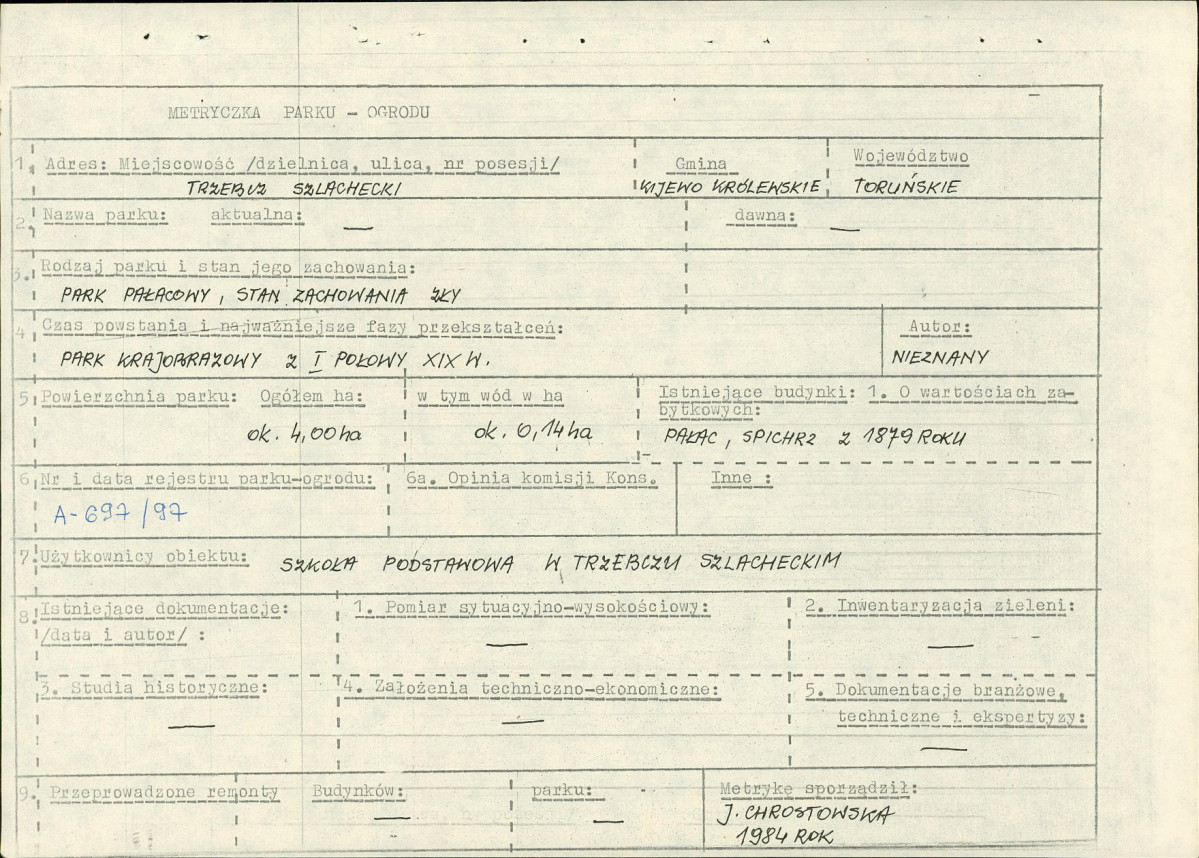 METRYCZKA PARKU - OGRODU
1. Adres: Miejscowość /dzielnica, ulica, nr posesji/ Gmina Województwo
TRZEBCZ SZLACHECKI KIJEWO KRÓLEWSKIE TORUŃSKIE
2. Nazwa parku: aktualna: — dawna: —
3. Rodzaj parku i stan jego zachowania:
PARK PAŁACOWY, STAN ZACHOWANIA ZŁY
4 Czas powstania i najważniejsze fazy przekształceń: Autor:
PARK KRAJOBRAZOWY Z I POŁOWY XIX W. NIEZNANY
5 Powierzchnia parku: Ogółem ha: w tym wód w ha Istniejące budynki: 1. O wartościach za-
bytkowych:
ok. 4,00 ha ok. 0,14 ha PAŁAC, SPICHRZ Z 1879 ROKU
6 Nr i data rejestru parku-ogrodu: 6a. Opinia komisji Kons. Inne :
A-697/97
7. Użytkownicy obiektu: SZKOŁA PODSTAWOWA W TRZEBCZU SZLACHECKIM
8. Istniejące dokumentacje: 1. Pomiar sytuacyjno-wysokościowy: 2. Inwentaryzacja zieleni:
/data i autor/ : — —
3. Studia historyczne: 4. Założenia techniczno-ekonomiczne: 5. Dokumentacje branżowe,
techniczne i ekspertyzy:
— — —
9. Przeprowadzone remonty Budynków: — parku: — Metrykę sporządził:
J. CHROSTOWSKA
1984 ROK